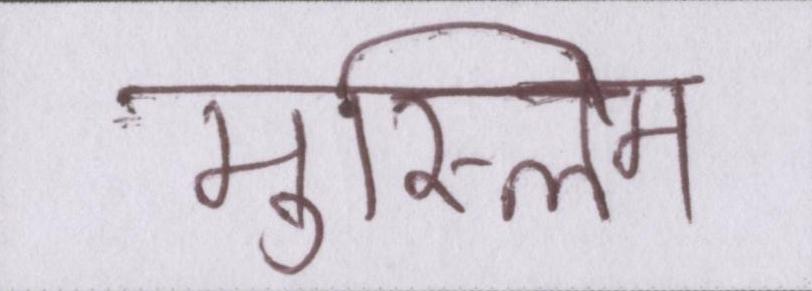 मुस्लिम